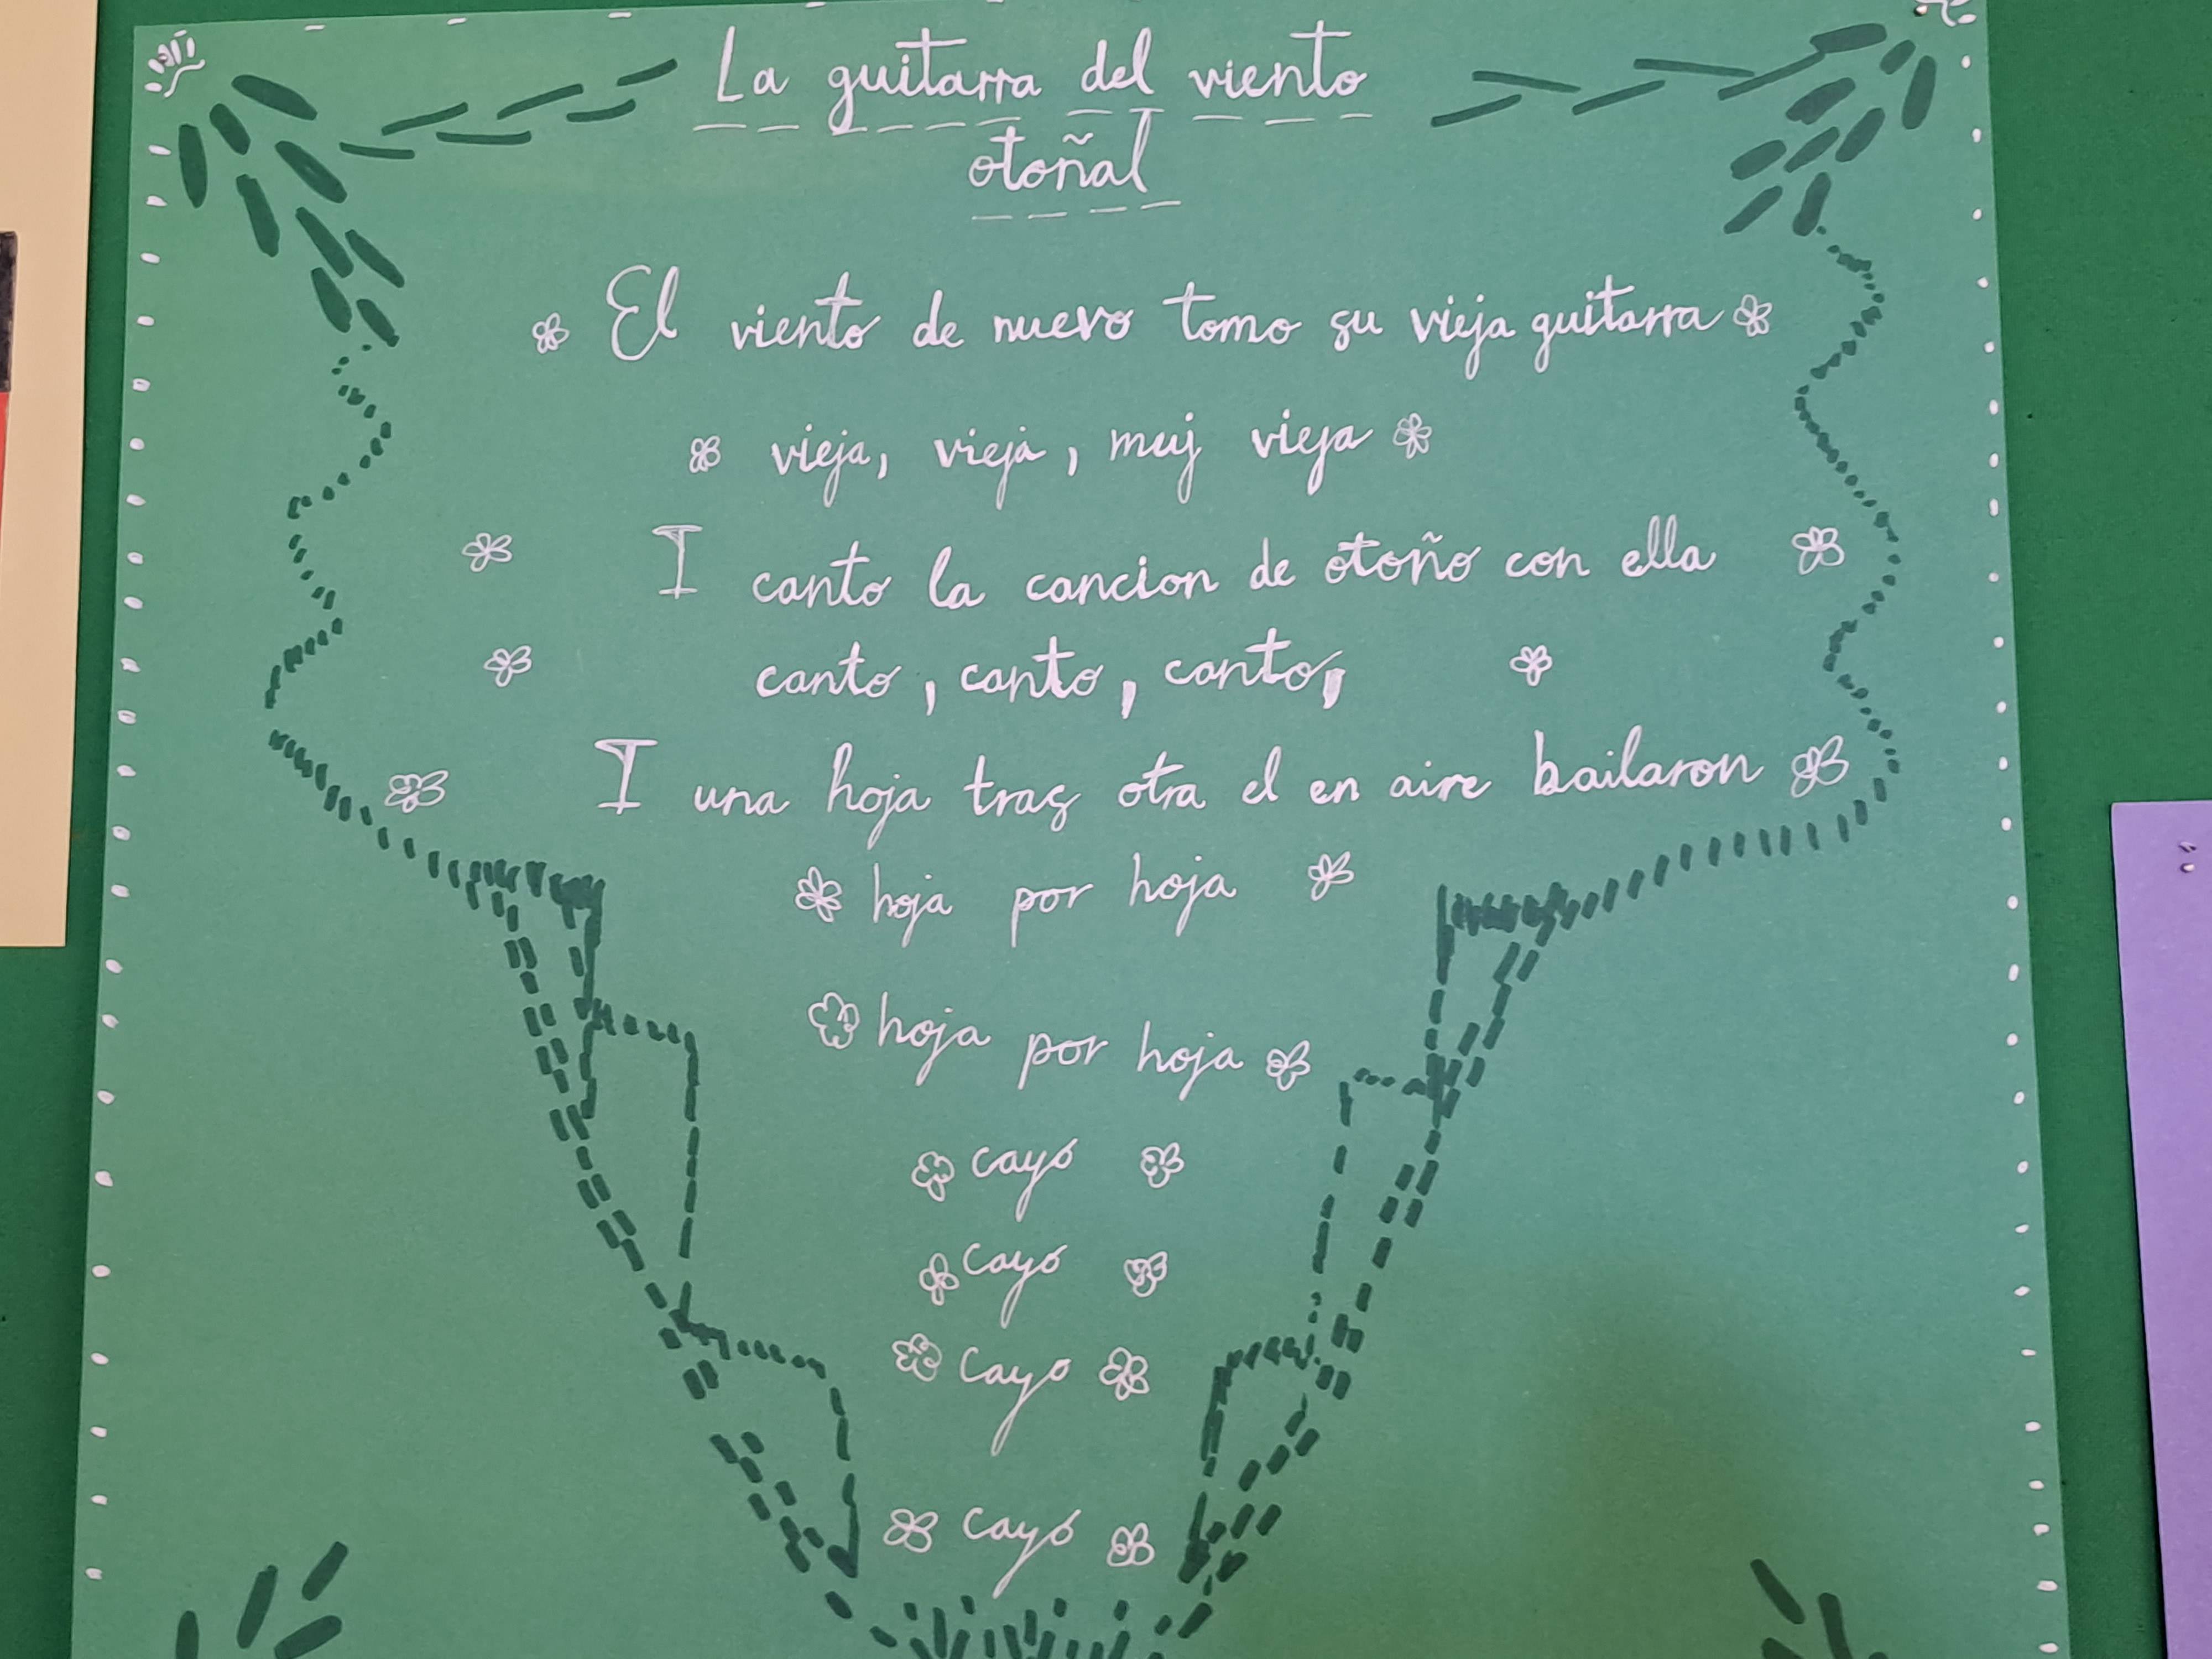 La guitarra del viento
otoñal
El viento de nuevo tomo su vieja guitarra
vieja, vieja, muy vieja
I canto la cancion de otoño con ella
canto, canto, canto,
I una hoja tras otra el en aire bailaron
hoja por hoja
hoja por hoja
cayó
cayó
cayo
cayó